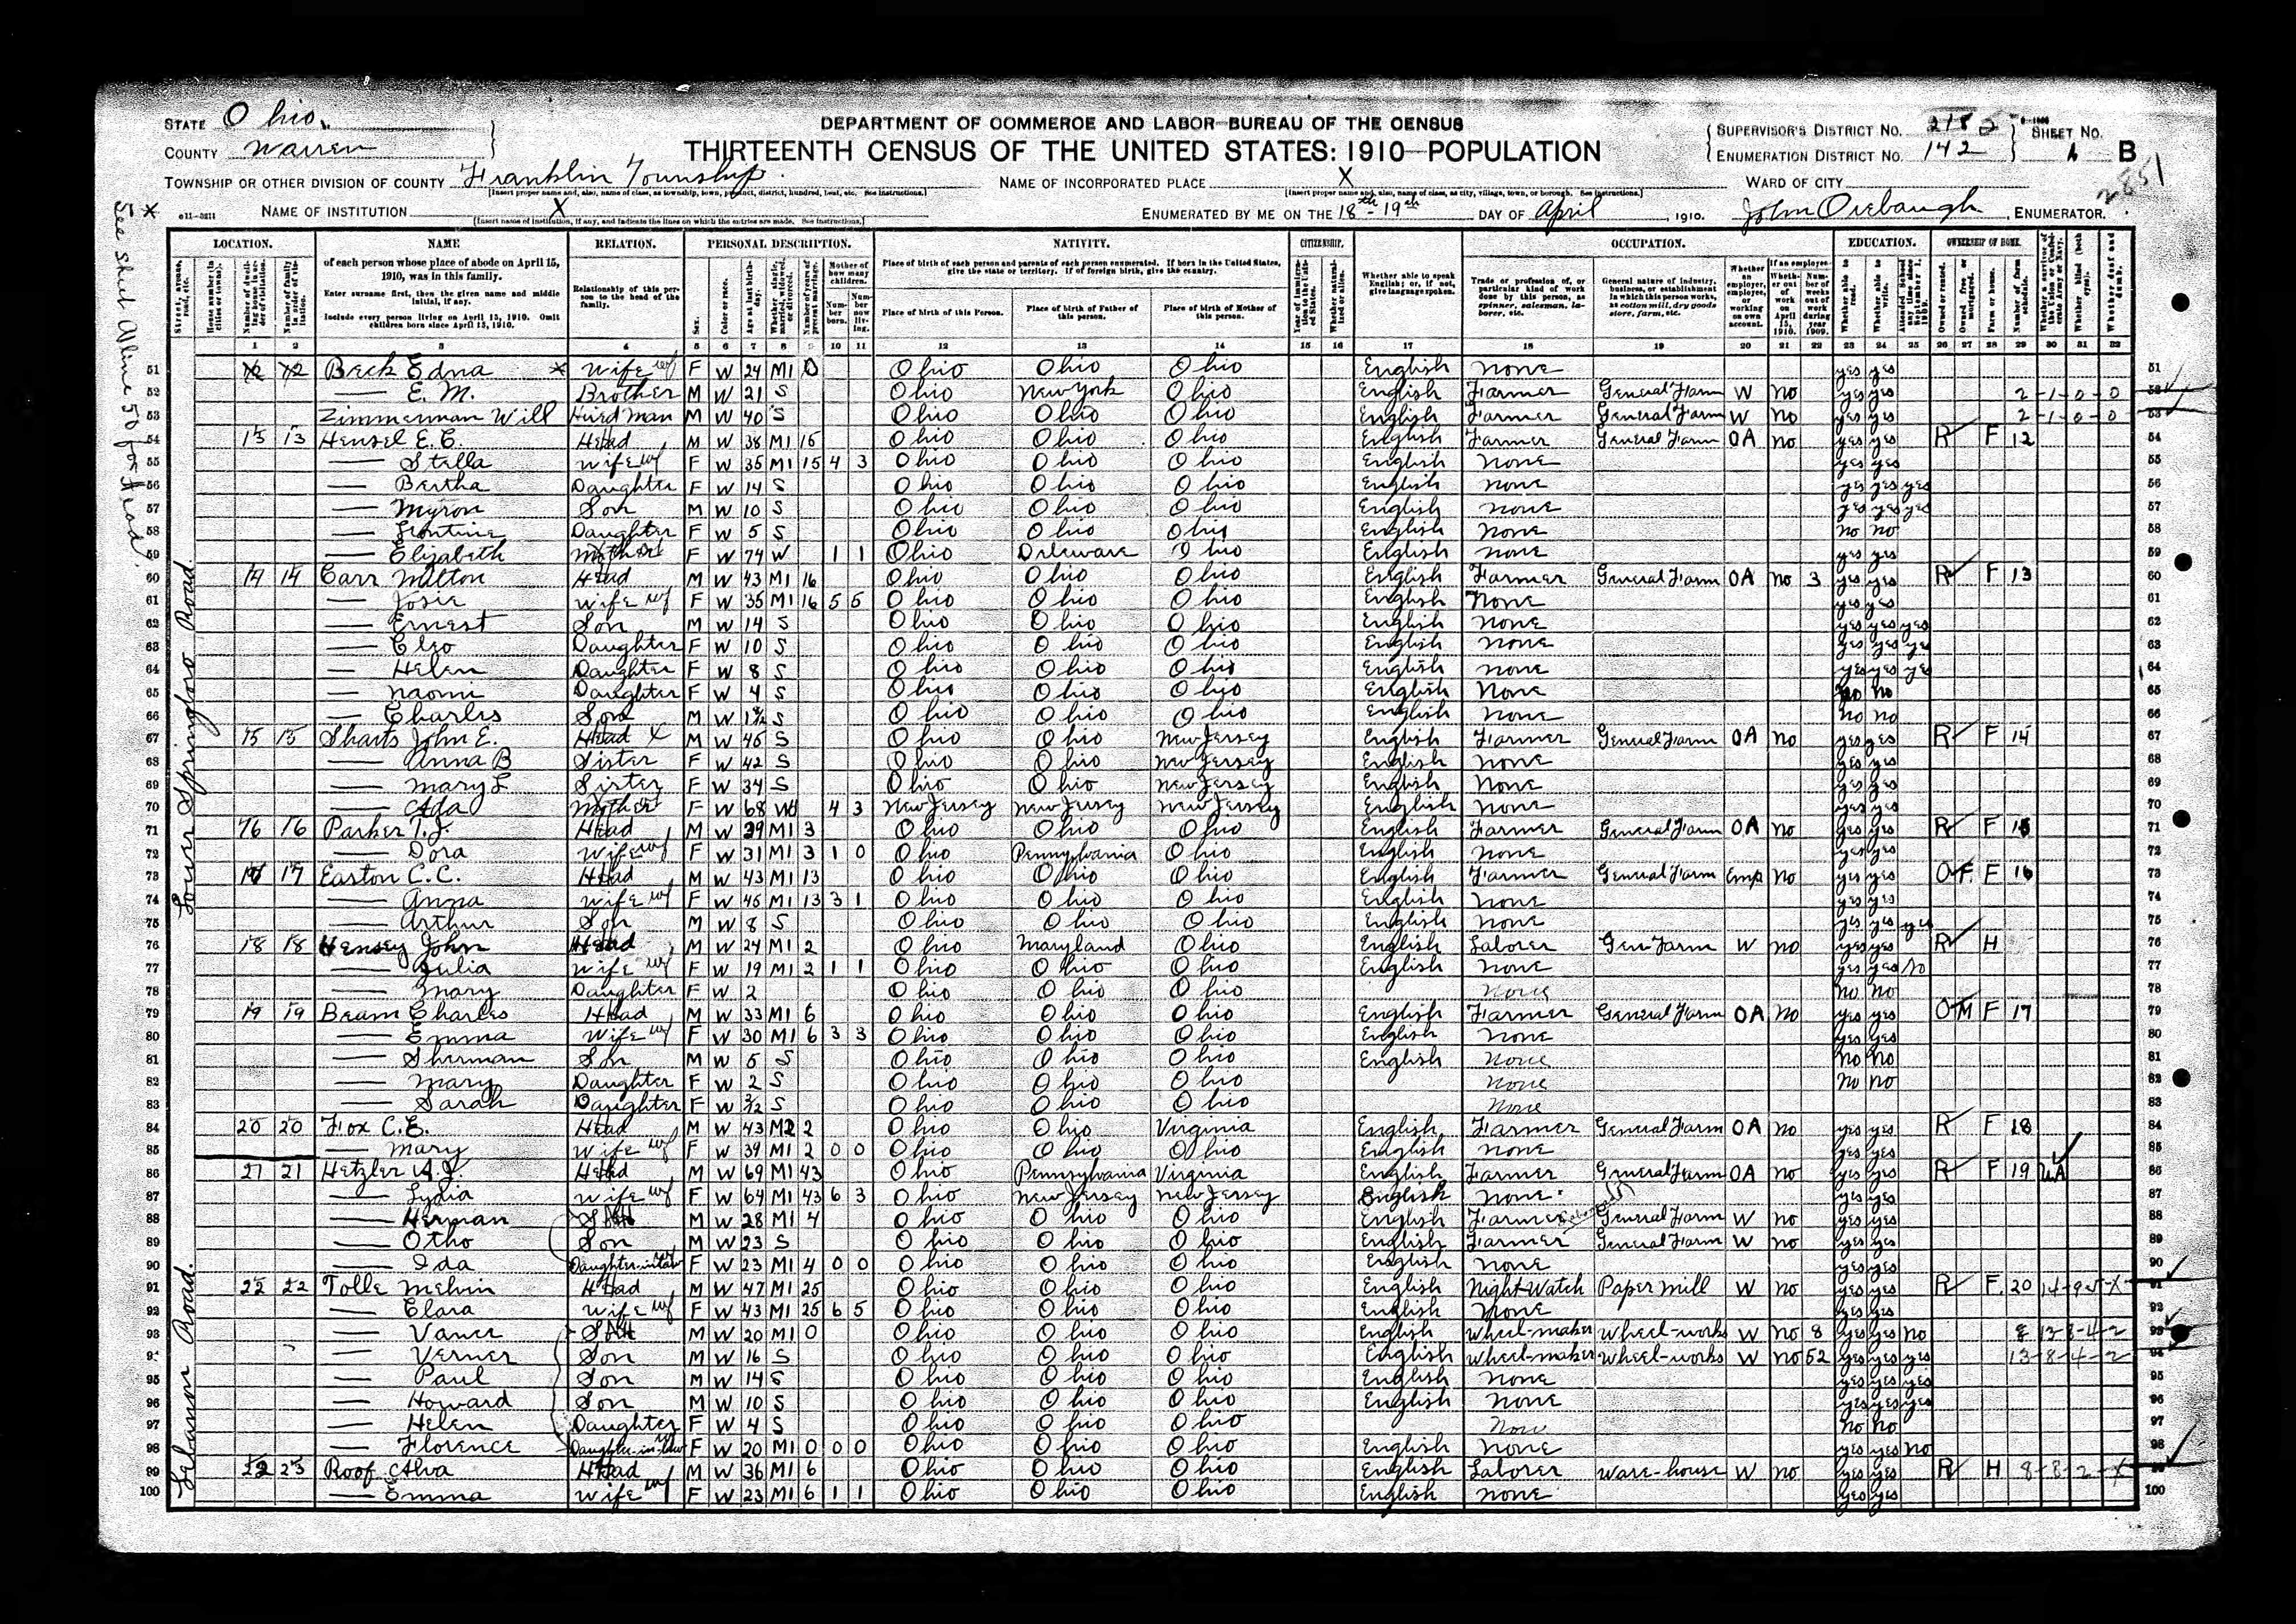 STATE Ohio.
COUNTY Warren
DEPARTMENT OF COMMERCE AND LABOR—BUREAU OF THE CENSUS
THIRTEENTH CENSUS OF THE UNITED STATES: 1910—POPULATION
SUPERVISOR'S DISTRICT NO. 2
ENUMERATION DISTRICT NO. 142
SHEET NO. B
2851
TOWNSHIP OR OTHER DIVISION OF COUNTY Franklin Township
NAME OF INCORPORATED PLACE X
WARD OF CITY
NAME OF INSTITUTION X
ENUMERATED BY ME ON THE 18th-19th DAY OF April, 1910. John Orebaugh, ENUMERATOR.
* See Sheet A line 50 for Head
Lower Springboro Road
Lebanon Road.
LOCATION. NAME RELATION. PERSONAL DESCRIPTION. NATIVITY. CITIZENSHIP. OCCUPATION. EDUCATION. OWNERSHIP OF HOME.
of each person whose place of abode on April 15, 1910, was in this family.
Enter surname first, then the given name and middle initial, if any.
Include every person living on April 15, 1910. Omit children born since April 15, 1910.
Relationship of this person to the head of the family.
Place of birth of each person and parents of each person enumerated. If born in the United States, give the state or territory. If of foreign birth, give the country.
Place of birth of this Person. Place of birth of Father of this person. Place of birth of Mother of this person.
Whether able to speak English; or, if not, give language spoken.
Trade or profession of, or particular kind of work done by this person, as spinner, salesman, laborer, etc.
General nature of industry, business, or establishment in which this person works, as cotton mill, dry goods store, farm, etc.
51 Beck Edna * Wife F W 24 M1 0 Ohio Ohio Ohio English none yes yes 51
52 — E. M. Brother M W 21 S Ohio New York Ohio English Farmer General Farm W no yes yes 2-1-0-0
53 Zimmerman Will Hired man M W 40 S Ohio Ohio Ohio English Farmer General Farm W no yes yes 2-1-0-0
54 13 13 Hensel E. C. Head M W 38 M1 15 Ohio Ohio Ohio English Farmer General Farm OA no yes yes R F 12 54
55 — Stella Wife F W 35 M1 15 4 3 Ohio Ohio Ohio English none yes yes 55
56 — Bertha Daughter F W 14 S Ohio Ohio Ohio English none yes yes yes 56
57 — Myron Son M W 10 S Ohio Ohio Ohio English none yes yes yes 57
58 — Daughter F W 5 S Ohio Ohio Ohio English none no no 58
59 — Elizabeth Mother F W 74 W 1 1 Ohio Delaware Ohio English none yes yes 59
60 14 14 Carr Milton Head M W 43 M1 16 Ohio Ohio Ohio English Farmer General Farm OA no 3 yes yes R F 13 60
61 — Josie Wife F W 35 M1 16 5 5 Ohio Ohio Ohio English None yes yes 61
62 — Ernest Son M W 14 S Ohio Ohio Ohio English none yes yes yes 62
63 — Cleo Daughter F W 10 S Ohio Ohio Ohio English none yes yes yes 63
64 — Helen Daughter F W 8 S Ohio Ohio Ohio English none yes yes yes 64
65 — Naomi Daughter F W 4 S Ohio Ohio Ohio English None no no 65
66 — Charles Son M W S Ohio Ohio Ohio English none no no 66
67 15 15 Sharts John E. Head X M W 45 S Ohio Ohio New Jersey English Farmer General Farm OA no yes yes R F 14 67
68 — Anna B Sister F W 42 S Ohio Ohio New Jersey English none yes yes 68
69 — Mary L Sister F W 34 S Ohio Ohio New Jersey English None yes yes 69
70 — Ada Mother F W 68 Wd 4 3 New Jersey New Jersey New Jersey English None yes yes 70
71 16 16 Parker T. J. Head M W 39 M1 3 Ohio Ohio Ohio English Farmer General Farm OA no yes yes R F 15 71
72 — Dora Wife F W 31 M1 3 1 0 Ohio Pennsylvania Ohio English none yes yes 72
73 17 17 Easton C. C. Head M W 43 M1 13 Ohio Ohio Ohio English Farmer General Farm Emp no yes yes O F F 16 73
74 — Anna Wife F W 45 M1 13 3 1 Ohio Ohio Ohio English none yes yes 74
75 — Arthur Son M W 8 S Ohio Ohio Ohio English none yes yes yes 75
76 18 18 Hensey John Head M W 24 M1 2 Ohio Maryland Ohio English Laborer Gen Farm W no yes yes R H 76
77 — Julia Wife F W 19 M1 2 1 1 Ohio Ohio Ohio English none yes yes no 77
78 — Mary Daughter F W 2 Ohio Ohio Ohio none no no 78
79 19 19 Beam Charles Head M W 33 M1 6 Ohio Ohio Ohio English Farmer General Farm OA no yes yes O M F 17 79
80 — Emma Wife F W 30 M1 6 3 3 Ohio Ohio Ohio English none yes yes 80
81 — Sherman Son M W 5 S Ohio Ohio Ohio English none no no 81
82 — Mary Daughter F W 2 S Ohio Ohio Ohio none no no 82
83 — Sarah Daughter F W 3/12 S Ohio Ohio Ohio none 83
84 20 20 Fox C. E. Head M W 43 M2 2 Ohio Ohio Virginia English Farmer General Farm OA no yes yes R F 18 84
85 — Mary Wife F W 39 M1 2 0 0 Ohio Ohio Ohio English none yes yes 85
86 21 21 Hetzler A. J. Head M W 69 M1 43 Ohio Pennsylvania Virginia English Farmer General Farm OA no yes yes R F 19 UA 86
87 — Lydia Wife F W 64 M1 43 6 3 Ohio New Jersey New Jersey English none yes yes 87
88 — Herman Son M W 28 M1 4 Ohio Ohio Ohio English Farmer General Farm W no yes yes 88
89 — Otho Son M W 23 S Ohio Ohio Ohio English Farmer General Farm W no yes yes 89
90 — Ida Daughter-in-law F W 23 M1 4 0 0 Ohio Ohio Ohio English none yes yes 90
91 22 22 Tolle Melvin Head M W 47 M1 25 Ohio Ohio Ohio English Night Watch Paper Mill W no yes yes R F 20
92 — Clara Wife F W 43 M1 25 6 5 Ohio Ohio Ohio English None yes yes 92
93 — Vance Son M W 20 M1 0 Ohio Ohio Ohio English Wheel-maker Wheel-works W no 8 yes yes no
94 — Verner Son M W 16 S Ohio Ohio Ohio English Wheel-maker Wheel-works W no 52 yes yes yes 13-8-4-2
95 — Paul Son M W 14 S Ohio Ohio Ohio English none yes yes yes 95
96 — Howard Son M W 10 S Ohio Ohio Ohio English none yes yes yes 96
97 — Helen Daughter F W 4 S Ohio Ohio Ohio None no no 97
98 — Florence Daughter-in-law F W 20 M1 0 0 0 Ohio Ohio Ohio English none yes yes no 98
99 23 Roof Alva Head M W 36 M1 6 Ohio Ohio Ohio English Laborer ware-house W no yes yes R H 8-8-2-X
100 — Emma Wife F W 23 M1 6 1 1 Ohio Ohio Ohio English none yes yes 100